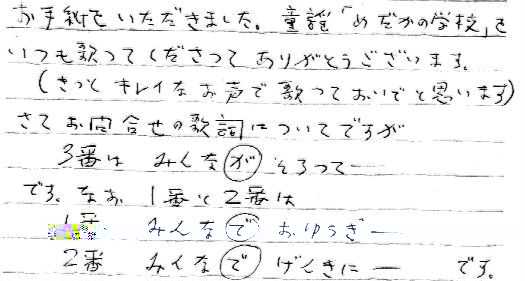 お手紙をいただきました。童謡「めだかの学校」を
いつも歌ってくださってありがとうございます。
(きっとキレイなお声で歌っておいでと思います)
さてお問合せの歌詞についてですが
3番は みんなが そろって—
です。なお 1番と2番は
1番 みんなで おゆうぎ—
2番 みんなで げんきに— です。